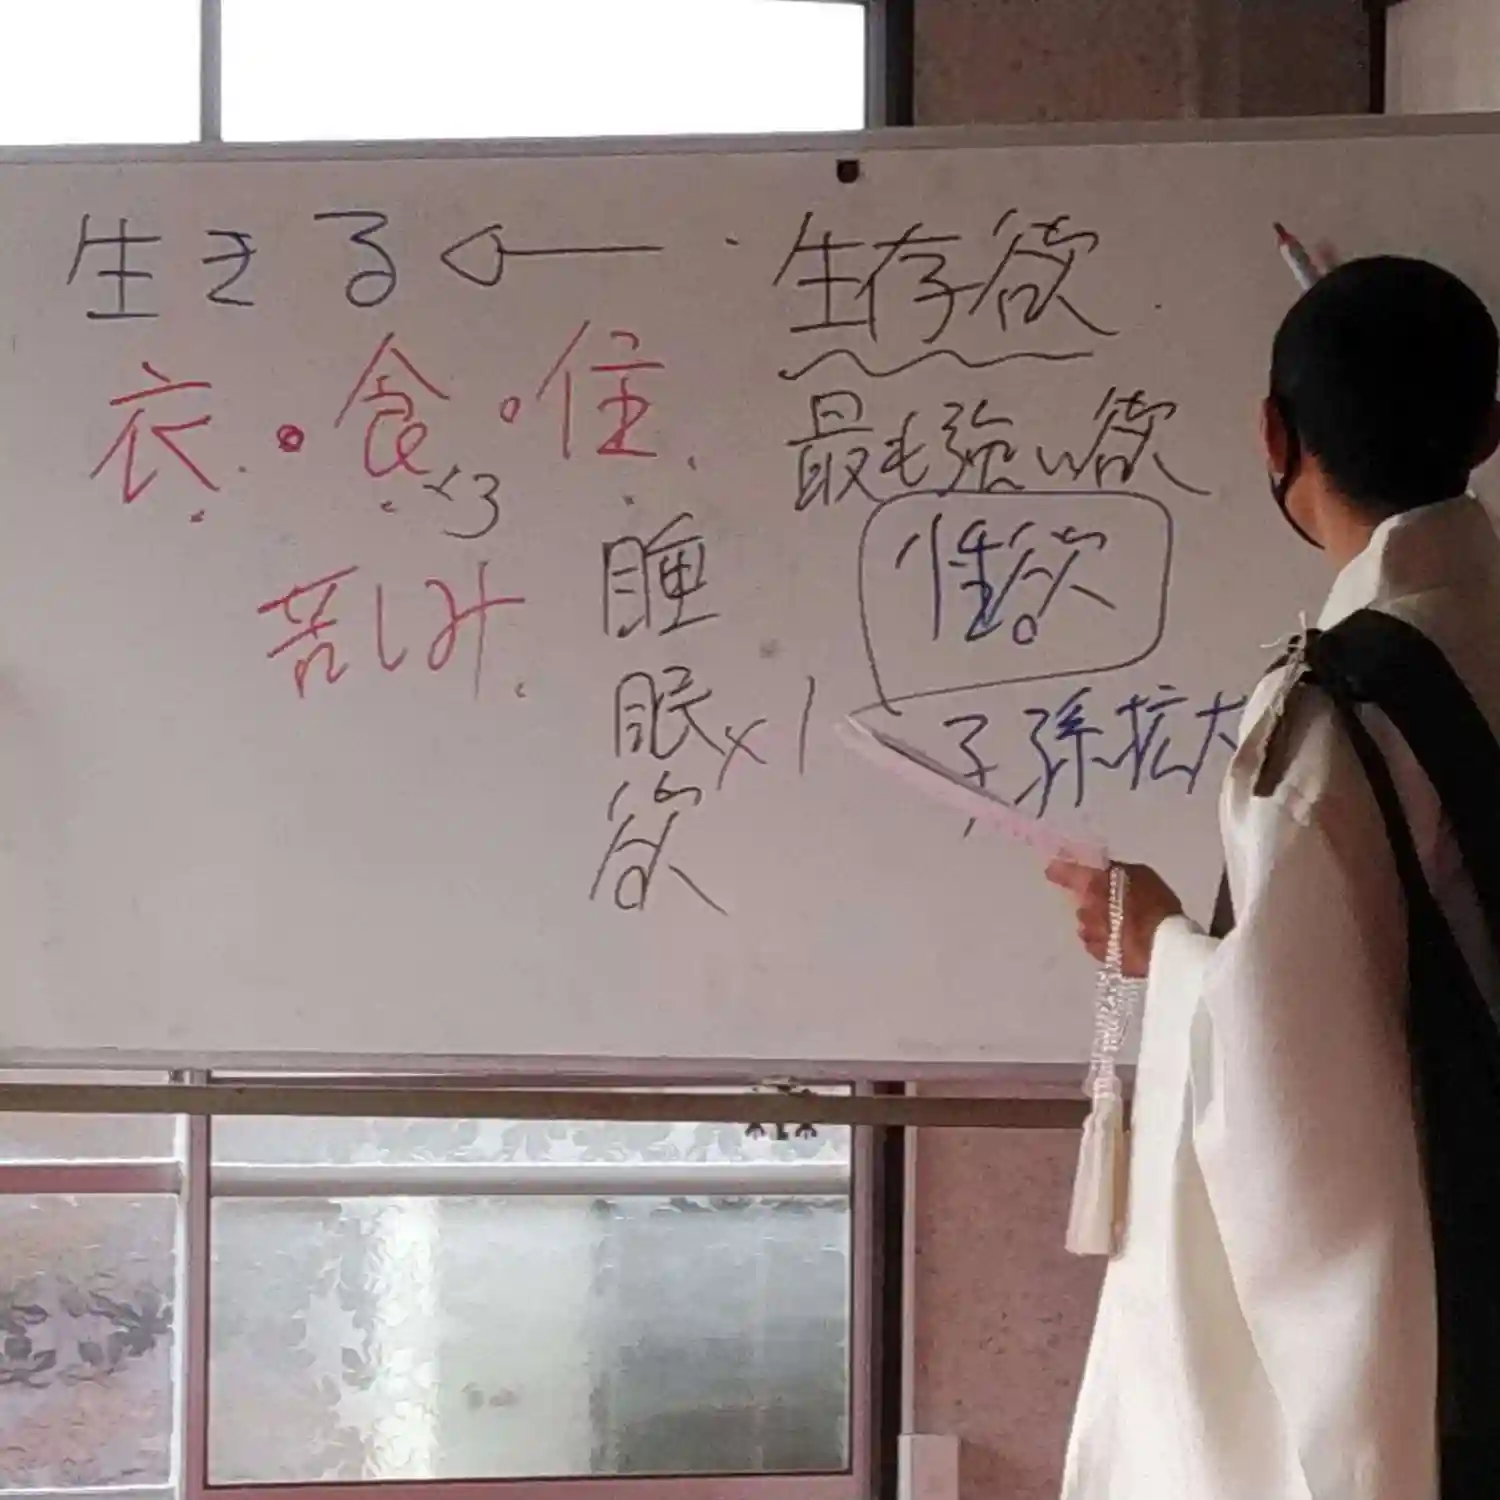 生きる ← 生存欲
衣・食・住
×3
最も強い欲
苦しみ
睡眠欲
×1
性欲
子孫拡大